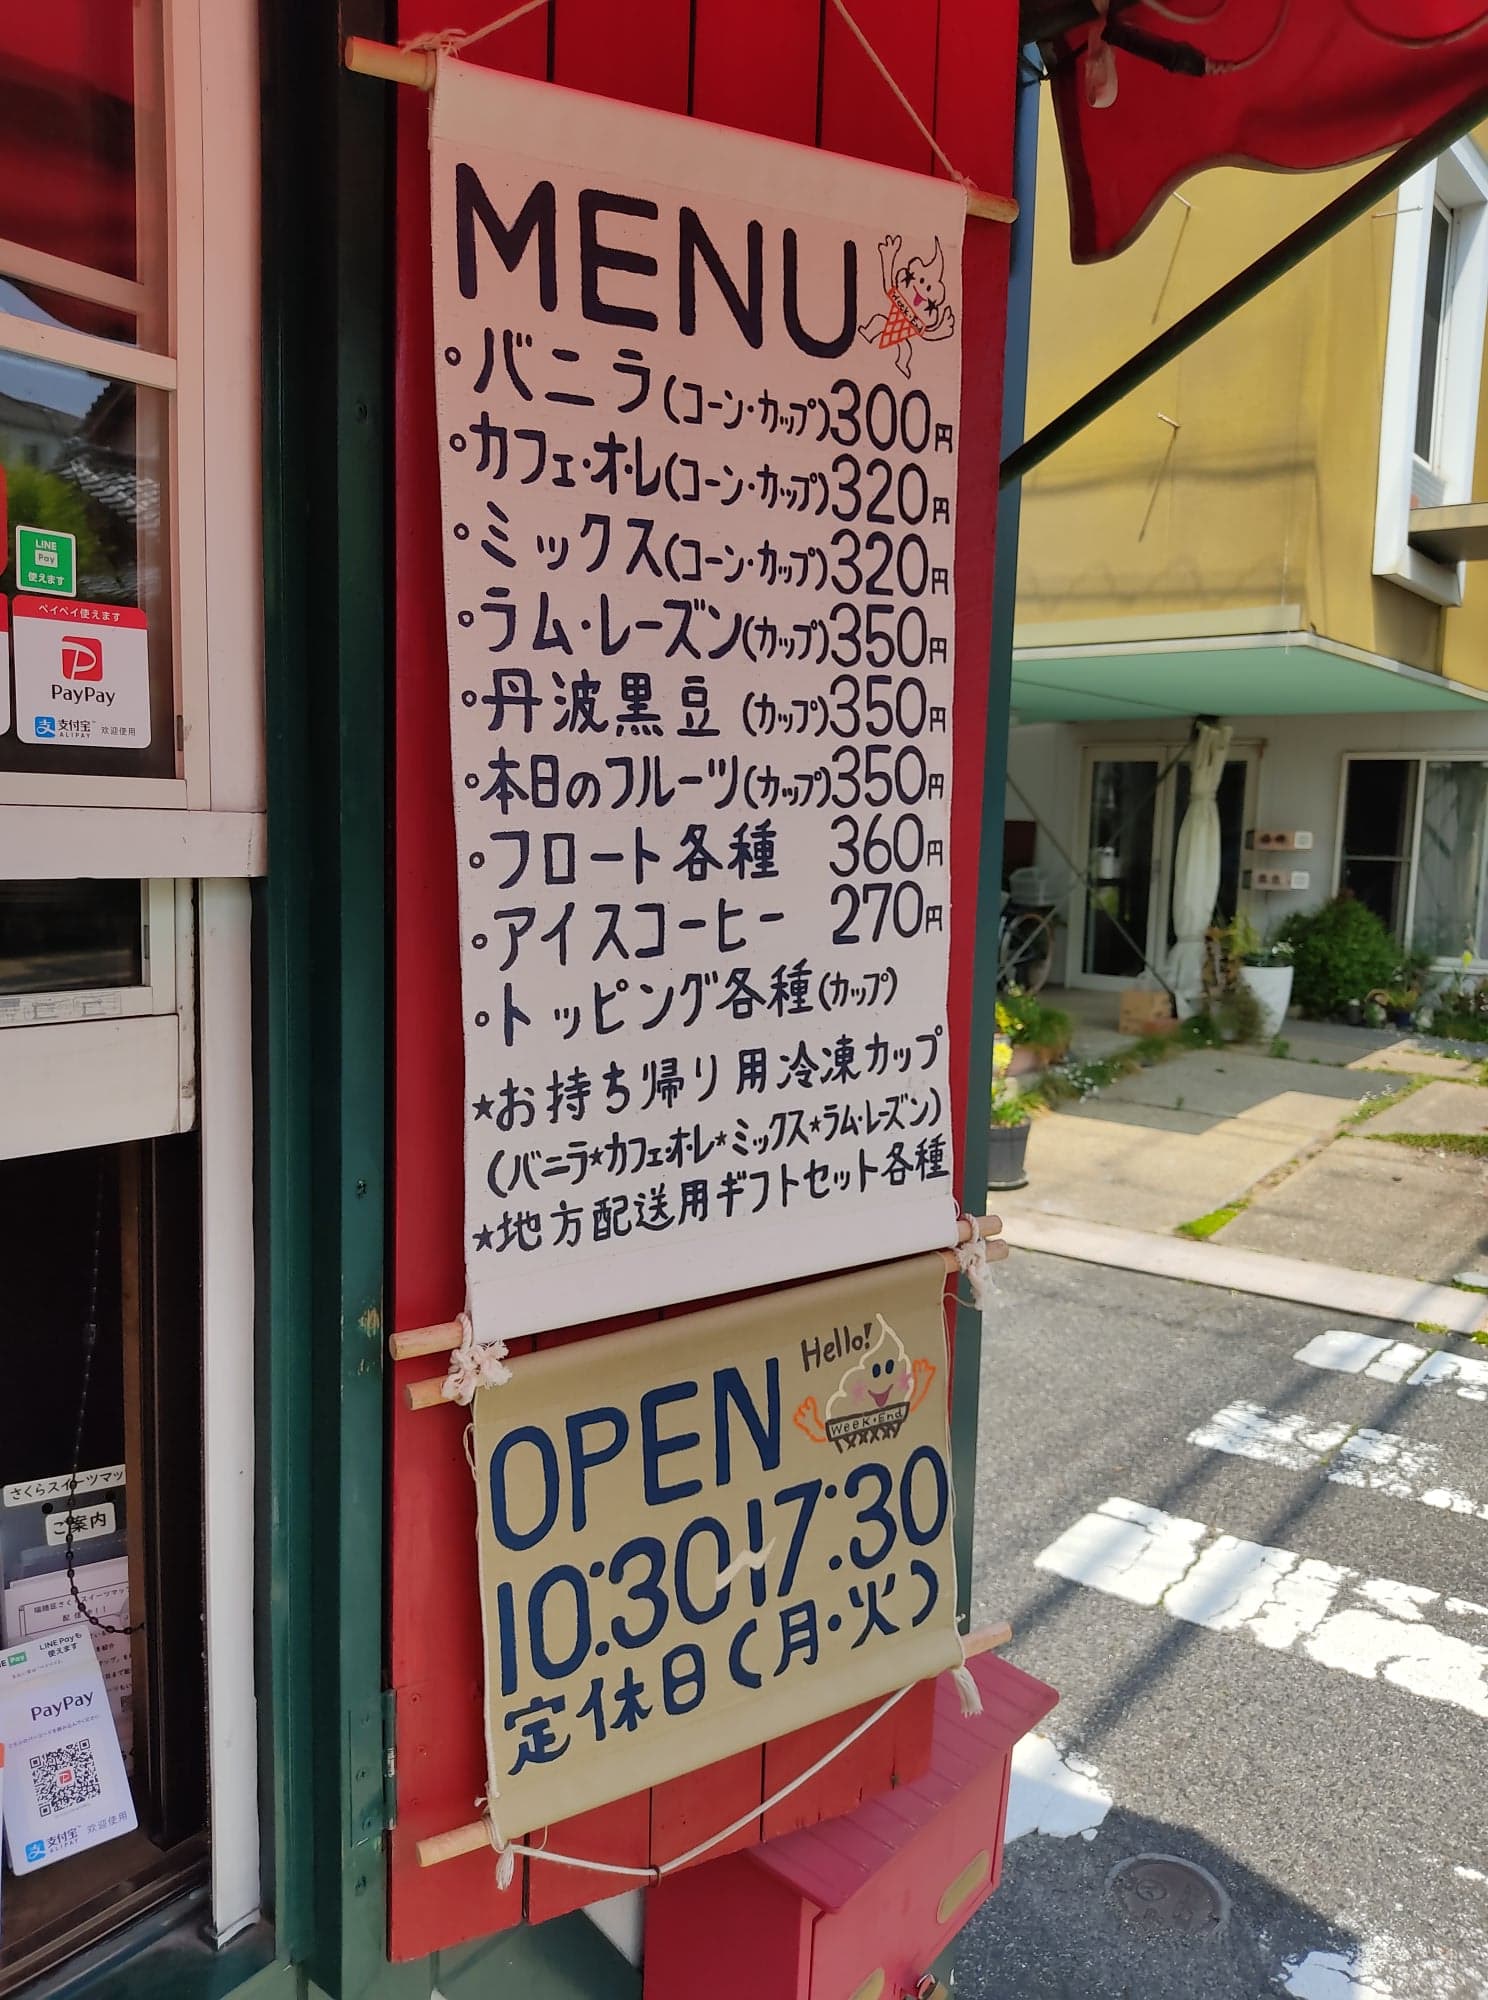 MENU
Week・End
・バニラ(コーン・カップ)300円
・カフェ・オ・レ(コーン・カップ)320円
・ミックス(コーン・カップ)320円
・ラム・レーズン(カップ)350円
・丹波黒豆 (カップ)350円
・本日のフルーツ(カップ)350円
・フロート各種 360円
・アイスコーヒー 270円
・トッピング各種(カップ)
★お持ち帰り用冷凍カップ
(バニラ★カフェ・オ・レ★ミックス★ラム・レーズン)
★地方配送用ギフトセット各種
Hello!
Week・End
OPEN
10:30~17:30
定休日(月・火)
LINE
Pay
使えます
ペイペイ使えます
PayPay
支付宝 欢迎使用
ALIPAY
さくらスイーツマッ
ご案内
LINE Payも
使えます
Pay
PayPay
支付宝 欢迎使用
ALIPAY